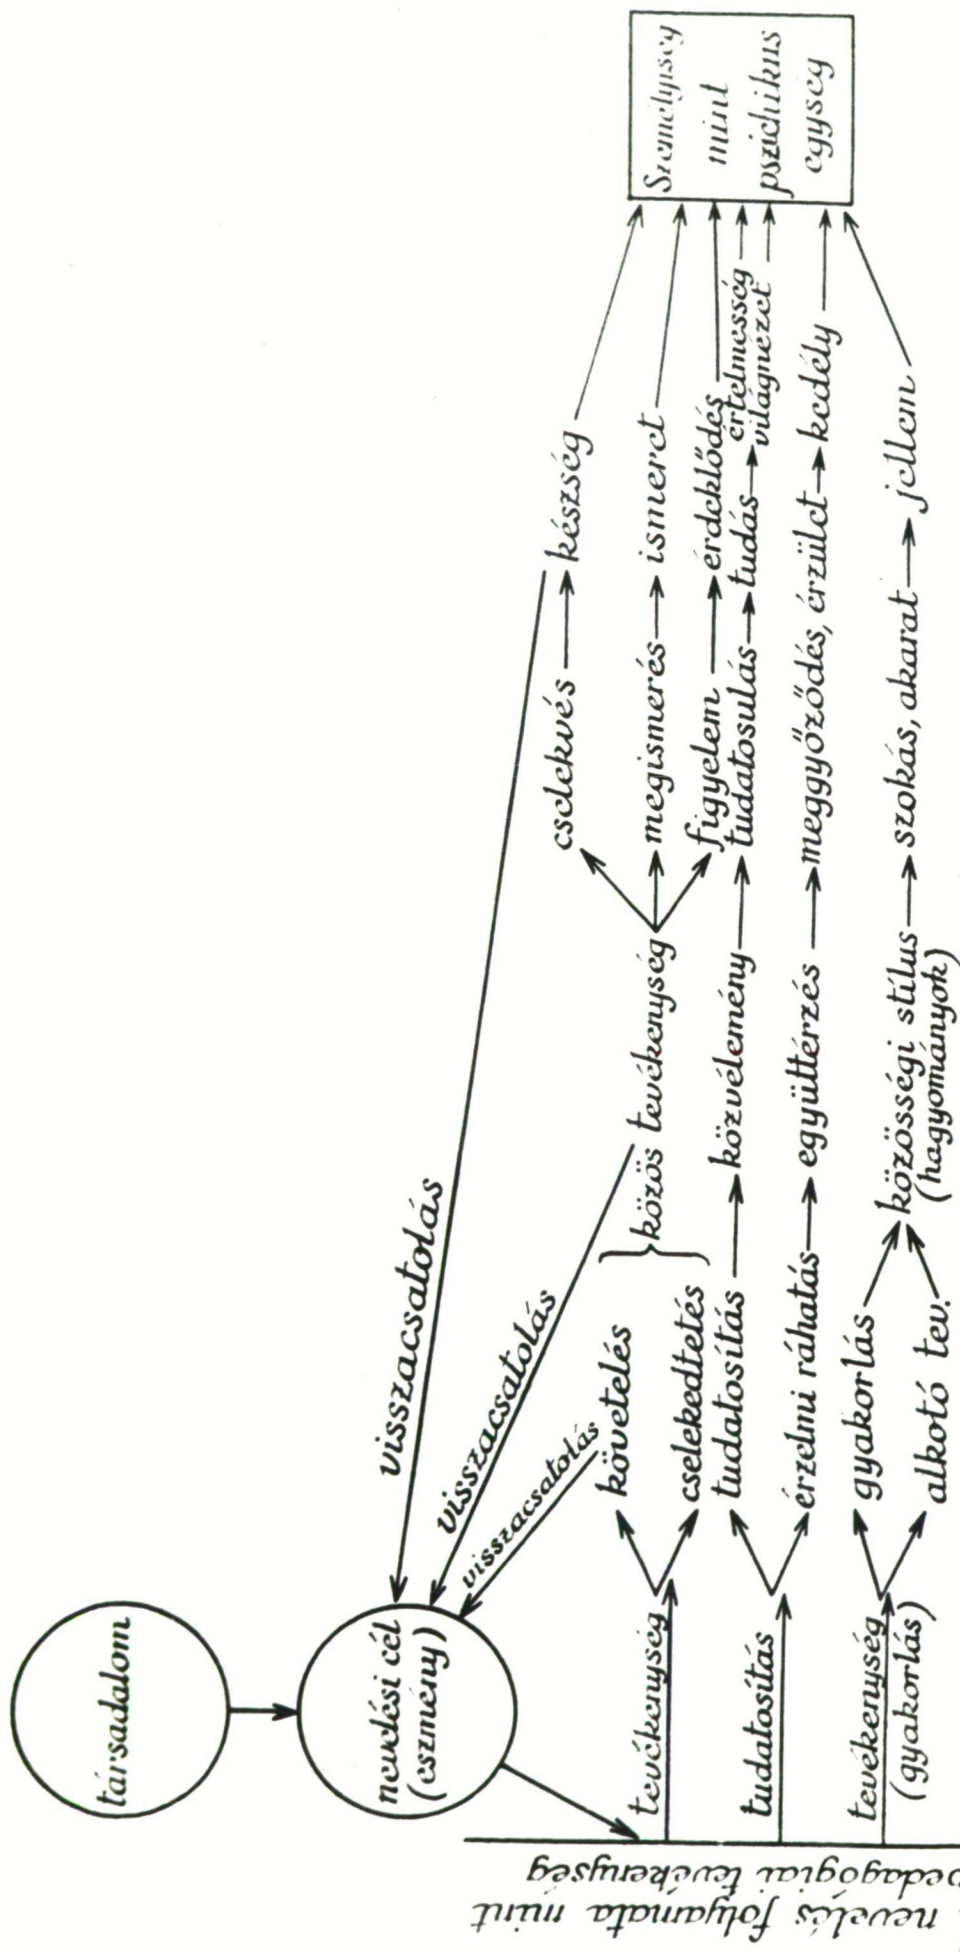 társadalom
nevelési cél
(eszmény)
visszacsatolás
visszacsatolás
visszacsatolás
nevelés folyamata mint
pedagógiai tevékenység
tevékenység
követelés
cselekedtetés
közös tevékenység
cselekvés
készség
megismerés
ismeret
figyelem
érdeklődés
tudatosítás
tudatosítás
közvélemény
tudatosulás
tudás
értelmesség
világnézet
érzelmi ráhatás
együttérzés
meggyőződés, érzület
kedély
tevékenység
(gyakorlás)
gyakorlás
alkotó tev.
közösségi stílus
(hagyományok)
szokás, akarat
jellem
Személyiség
mint
pszichikus
egység